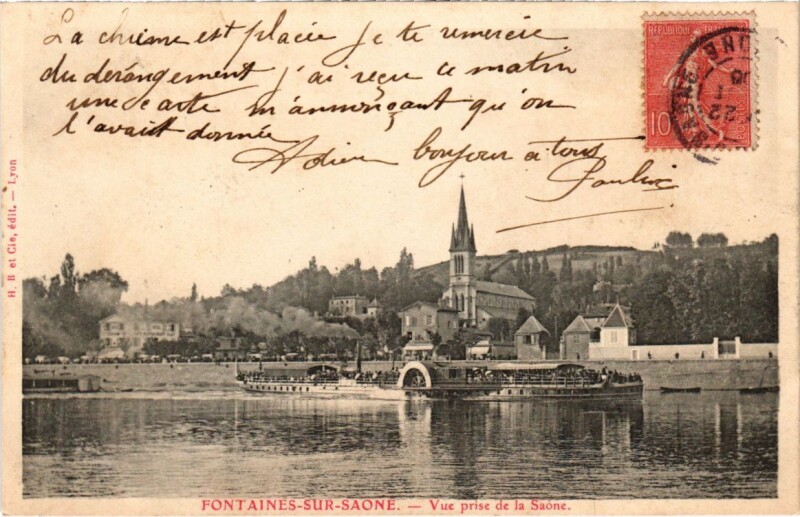 La chienne est placée je te remercie
du dérangement j'ai reçu ce matin
une carte m'annonçant qu'on
l'avait donnée
Adieu bonjour à tous
REPUBLIQUE FRANÇAISE
10
22
H. B et Cie, édit. — Lyon
FONTAINES-SUR-SAONE. — Vue prise de la Saône.